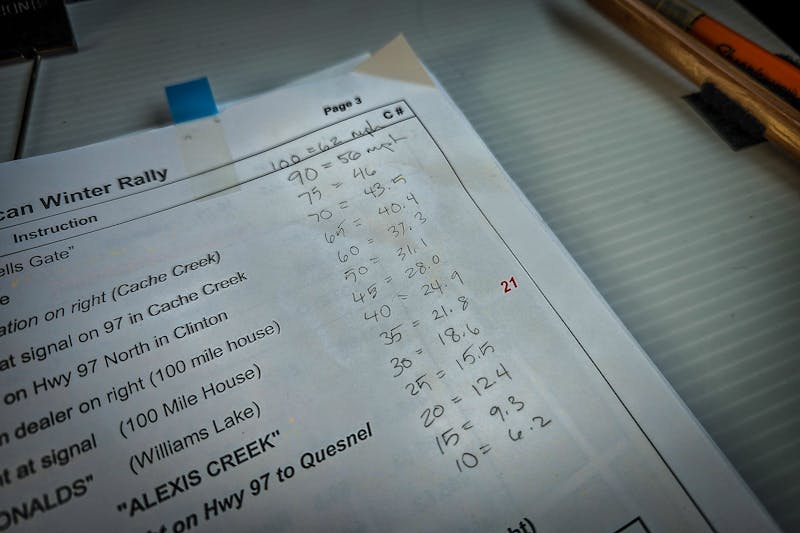 Page 3
C #
can Winter Rally
100 = 62 mph
90 = 56 mph
Instruction
75 = 46
70 = 43.5
ells Gate"
65 = 40.4
60 = 37.3
e
50 = 31.1
ation on right (Cache Creek)
45 = 28.0
at signal on 97 in Cache Creek
40 = 24.9
21
on Hwy 97 North in Clinton
35 = 21.8
n dealer on right (100 mile house)
30 = 18.6
nt at signal (100 Mile House)
25 = 15.5
ONALDS" (Williams Lake)
20 = 12.4
"ALEXIS CREEK"
15 = 9.3
ht on Hwy 97 to Quesnel
10 = 6.2
ht)